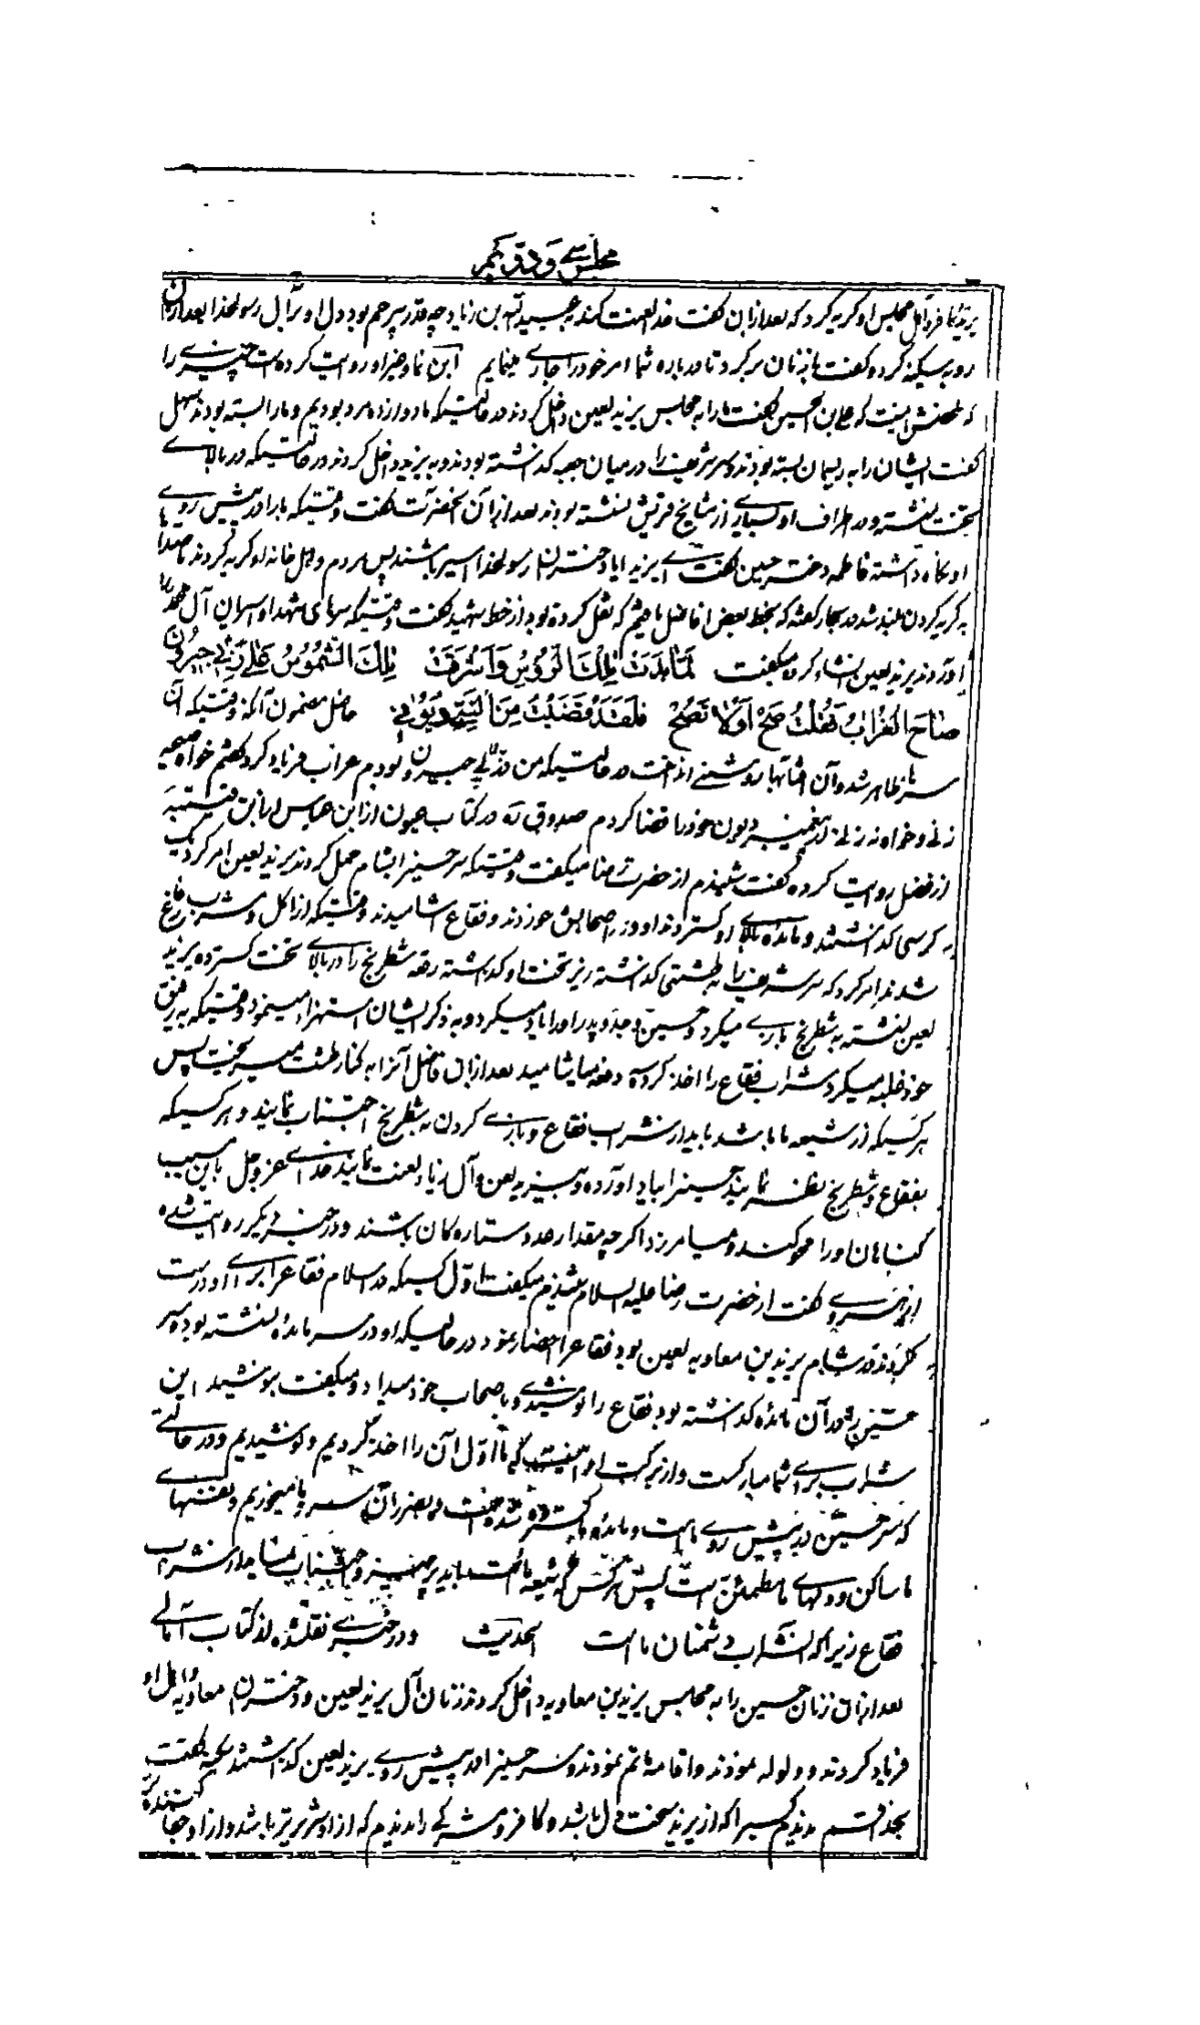 مجلس سے و دویکم
یزید کافر و اهل مجلس او گریه کرد که بعد از ان گفت خدا لعنت کند عبید الله بن زیاد چه قدر بیرحم بود دل او بر آل رسولخدا بعد از ان
رو به سکینه کرده گفت با زنان برگرد تا در باره شما امر خود را جاری مینمایم ابن نما و غیر او روایت کرده است خبری را
که ملخصش اینست که علی بن الحسین گفت ما را به مجلس یزید لعین داخل کردند در حالتیکه ما دوازده مرد بودیم و ما را بسته بودند سهل
گفت ایشان را به ریسمان بسته بودند و سر شریفت را در میان حقه گذاشته بودند و به یزید داخل کردند در حالتیکه در بالای
تخت نشسته و در اطراف او بسیاری از مشایخ قریش نشسته بودند بعد از ان آنحضرت گفت وقتیکه ما را در پیش روی
او نگاه داشته فاطمه دختر حسین گفت ای یزید ایا دختران رسولخدا اسیر باشند پس مردم و اهل خانه او گریه کردند تا صدا
به گریه کردن بلند شد در بحار گفته که بخط بعض افاضل یافتم که نقل کرده بود از خط شهید گفت وقتیکه سرهای شهدا و اسیران آل محمد را
آوردند یزید لعین انشاء کرده میگفت لَمَّا بَدَتْ تِلْكَ الرُّؤُسُ وَاَشْرَقَتْ تِلْكَ الشُّمُوسُ عَلَى رُبٰى جَيْرُونَ
صَاحَ الْغُرَابُ فَقُلْتُ صِحْ اَوْلَا تَصِحْ فَلَقَدْ قَضَيْتُ مِنَ النَّبِيِّ دُيُونِي حاصل مضمون آنکه وقتیکه آن
سرها ظاهر شد و آن افتابها روشنی انداخت در حالتیکه من در تلهای جیرون بودم غراب فریاد کرد گفتم خواه صیحه
زنی و خواه نه زنی از پیغمبر دیون خود را قضا کردم صدوق ره در کتاب عیون از ابن عبدوس از ابن قتیبه
از فضل روایت کرده گفت شنیدم از حضرت رضا میگفت وقتیکه سر حسین را بشام حمل کردند یزید لعین امر کرد
به کرسی گذاشتند و مائده بالای او گستردند او و اصحابش خوردند و فقاع اشامیدند وقتیکه از اکل و شرب فارغ
شدند امر کرد که سر شریف را به طشتی گذاشته زیر تخت او گذاشته رقعه شطرنج را در بالای تخت گسترده یزید
لعین نشسته به شطرنج بازی میکرد و حسین و جد و پدر او را یاد میکرد و به ذکر ایشان استهزاء مینمود وقتیکه به رفیق
خود غلبه میکرد شراب فقاع را اخذ کرده سه دفعه میاشامید بعد از ان فاضل آنرا به کنار طشت میریخت پس
هر کسیکه از شیعه ما باشد باید از شراب فقاع و بازی کردن به شطرنج اجتناب نمایند و هر کسیکه
بفقاع و شطرنج نظر نماید حسین را بیاد آورده و به یزید لعین و آل زیاد لعنت نماید خدای عزوجل باین سبب
گناهان او را محو کند و میامرزد اگر چه مقدار عدد ستارگان باشند و در خبر دیگر روایت شده
از هروی گفت از حضرت رضا علیه السلام شنیدم میگفت اول کسیکه در اسلام فقاع را برای او درست
کردند در شام یزید بن معاویه لعین بود فقاع را احضار نمود در حالتیکه او در سر مائده نشسته بود سر
حسین را در آن مائده گذاشته بود فقاع را نوشیدی و باصحاب خود میداد و میگفت بنوشید این
شراب برای شما مبارکست و از برکت او اینست که ما اول آن را اخذ کردیم و نوشیدیم و در حالتی
که سر حسین در پیش روی ما است و مائده ما گسترده شده است
ما ساکن و دلهای ما مطمئن است پس هر کس که شیعه ما است باید پرهیز و اجتناب نماید از شراب
فقاع زیرا که شراب دشمنان ما است الحدیث و در خبری نقل شده از کتاب آمالی
بعد از ان زنان حسین را به مجلس یزید بن معاویه داخل کردند زنان آل یزید لعین و دختران معاویه و اهل او
فریاد کردند و ولوله نمودند و اقامه ماتم نمودند و سر حسین را در پیش روی یزید لعین گذاشتند سکینه گفت
بخدا قسم ندیدم کسیرا که از یزید سخت دل باشد و کافر و مشرکی را ندیدم که از او شریرتر باشد و از او جفا کننده تر